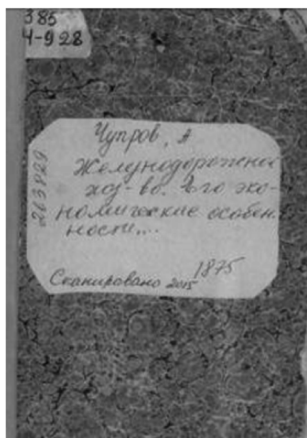 385
Ч-928
263829
Чупров, А
Железнодорожное
хоз-во. Его эко-
номические особен
ности....
1875
Сканировано 2015